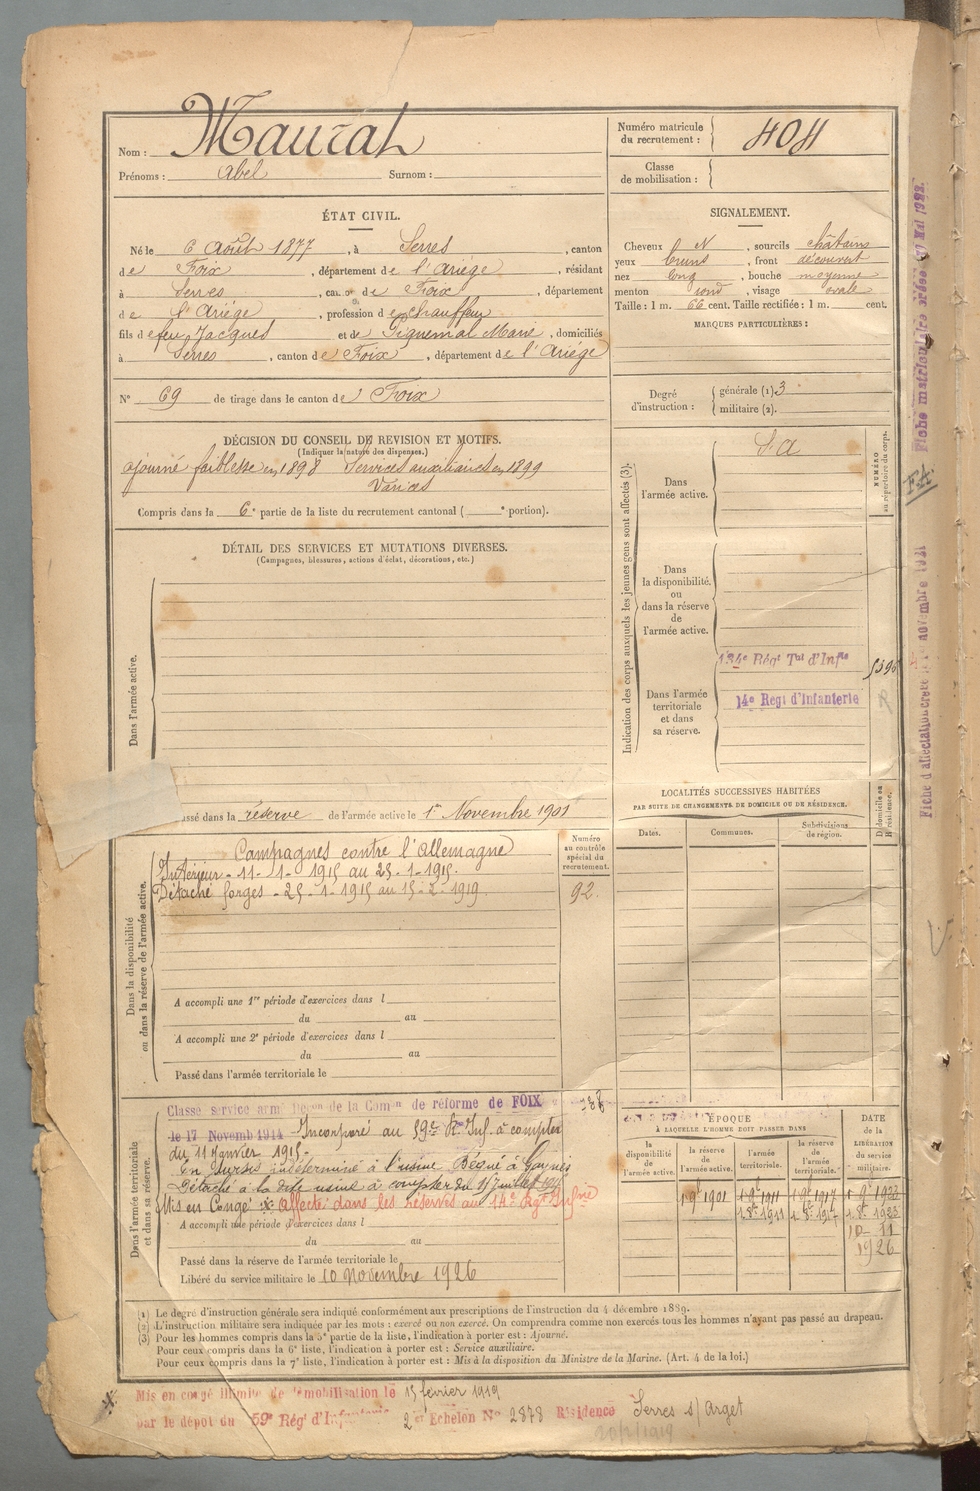 Nom : Maurat
Prénoms : Abel Surnom :
Numéro matricule du recrutement : 404
Classe de mobilisation :
ÉTAT CIVIL.
Né le 6 Août 1877, à Serres, canton
de Foix, département de l'Ariége, résidant
à Serres, canton de Foix, département
de l'Ariége, profession de chauffeur
fils de feu Jacques et de Piquemal Marie, domiciliés
à Serres, canton de Foix, département de l'Ariége
N° 69 de tirage dans le canton de Foix
SIGNALEMENT.
Cheveux N, sourcils châtains
yeux bruns, front découvert
nez long, bouche moyenne
menton rond, visage ovale
Taille : 1 m. 66 cent. Taille rectifiée : 1 m. cent.
MARQUES PARTICULIÈRES :
Degré d'instruction : générale (1) 3
militaire (2).
DÉCISION DU CONSEIL DE REVISION ET MOTIFS.
(Indiquer la nature des dispenses.)
ajourné faiblesse en 1898 Services auxiliaires en 1899
Varices
Compris dans la 6e partie de la liste du recrutement cantonal ( e portion).
Indication des corps auxquels les jeunes gens sont affectés (3).
NUMÉRO au répertoire du corps.
Dans l'armée active.
S. A
Dans la disponibilité ou dans la réserve de l'armée active.
Dans l'armée territoriale et dans sa réserve.
134e Régt Tal d'Infie
14e Regt d'Infanterie
DÉTAIL DES SERVICES ET MUTATIONS DIVERSES.
(Campagnes, blessures, actions d'éclat, décorations, etc.)
Dans l'armée active.
assé dans la réserve de l'armée active le 1er Novembre 1901
LOCALITÉS SUCCESSIVES HABITÉES
PAR SUITE DE CHANGEMENTS DE DOMICILE OU DE RÉSIDENCE.
Dates. Communes. Subdivisions de région. D domicile ou R résidence.
Dans la disponibilité ou dans la réserve de l'armée active.
Numéro au contrôle spécial du recrutement.
92
Campagnes contre l'Allemagne
Intérieur - 11-1-1915 au 25-1-1915.
Détaché forges - 25-1-1915 au 15-2-1919.
A accompli une 1re période d'exercices dans l
du au
A accompli une 2e période d'exercices dans l
du au
Passé dans l'armée territoriale le
Dans l'armée territoriale et dans sa réserve.
Classé service armé Décon de la Comon de réforme de FOIX
le 17 Novemb 1914 Incorporé au 59e R. Inf. à compter
du 11 Janvier 1915.
En sursis indéterminé à l'usine
Détaché à la dite usine à compter du
Mis en Congé * Affecté dans les réserves au 14e Rgt Infrie
A accompli une période d'exercices dans l
du au
Passé dans la réserve de l'armée territoriale le
Libéré du service militaire le 10 Novembre 1926
ÉPOQUE
À LAQUELLE L'HOMME DOIT PASSER DANS
la disponibilité de l'armée active. la réserve de l'armée active. l'armée territoriale. la réserve de l'armée territoriale. DATE de la LIBÉRATION du service militaire.
1 9e 1901 1 9e 1911 1 9e 1917 1 9e 1923
1 8e 1911 1 8e 1917 1 8e 1923
10 - 11
1926
(1) Le degré d'instruction générale sera indiqué conformément aux prescriptions de l'instruction du 4 décembre 1889.
(2) L'instruction militaire sera indiquée par les mots : exercé ou non exercé. On comprendra comme non exercés tous les hommes n'ayant pas passé au drapeau.
(3) Pour les hommes compris dans la 5e partie de la liste, l'indication à porter est : Ajourné.
Pour ceux compris dans la 6e liste, l'indication à porter est : Service auxiliaire.
Pour ceux compris dans la 7e liste, l'indication à porter est : Mis à la disposition du Ministre de la Marine. (Art. 4 de la loi.)
* Mis en congé illimité de démobilisation le 15 février 1919
par le dépôt du 59e Régt d'Infanterie 2e Echelon N° 2878 Résidence Serres s/ Arget
Fiche matriculaire créée
Fiche d'affectation créée novembre 1921